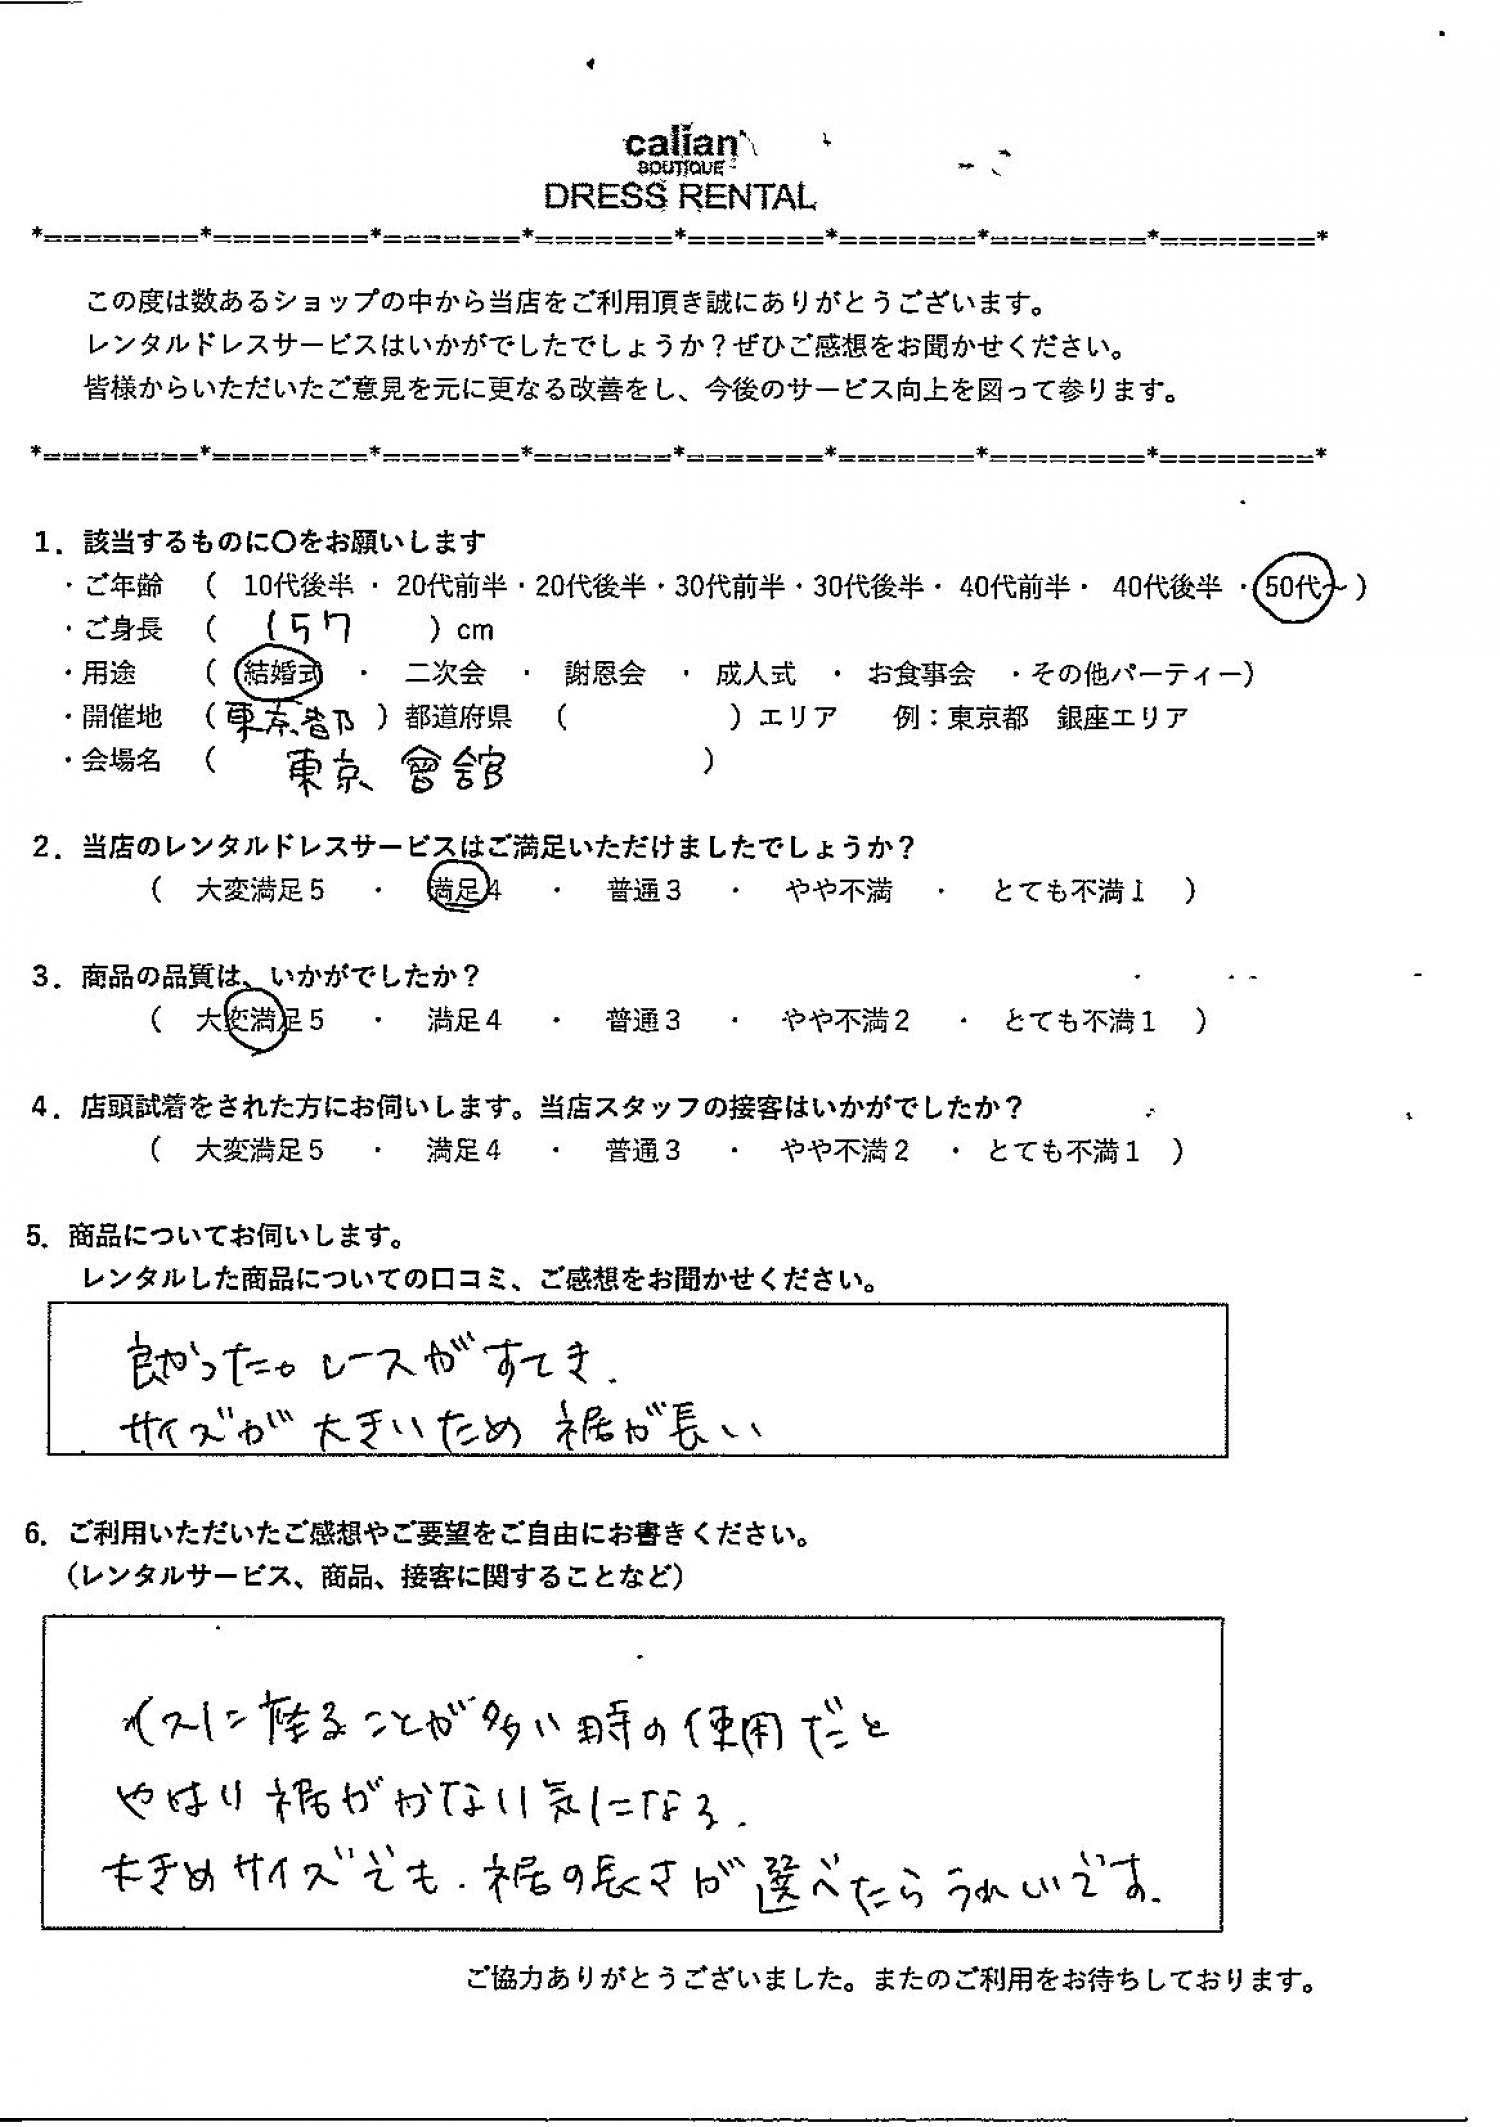 calian
BOUTIQUE
DRESS RENTAL
*========*========*=======*=======*=======*=======*========*========*
この度は数あるショップの中から当店をご利用頂き誠にありがとうございます。
レンタルドレスサービスはいかがでしたでしょうか？ぜひご感想をお聞かせください。
皆様からいただいたご意見を元に更なる改善をし、今後のサービス向上を図って参ります。
*========*========*=======*=======*=======*=======*========*========*
1．該当するものに〇をお願いします
・ご年齢 （ 10代後半 ・ 20代前半・20代後半・30代前半・30代後半・ 40代前半・ 40代後半 ・50代～ ）
・ご身長 （ 157 ）cm
・用途 （ 結婚式 ・ 二次会 ・ 謝恩会 ・ 成人式 ・ お食事会 ・その他パーティー）
・開催地 （東京都内 ）都道府県 （ ）エリア 例：東京都 銀座エリア
・会場名 （ 東京會舘 ）
2．当店のレンタルドレスサービスはご満足いただけましたでしょうか？
（ 大変満足５ ・ 満足４ ・ 普通３ ・ やや不満 ・ とても不満１ ）
3．商品の品質は、いかがでしたか？
（ 大変満足５ ・ 満足４ ・ 普通３ ・ やや不満２ ・ とても不満１ ）
4．店頭試着をされた方にお伺いします。当店スタッフの接客はいかがでしたか？
（ 大変満足５ ・ 満足４ ・ 普通３ ・ やや不満２ ・ とても不満１ ）
5．商品についてお伺いします。
レンタルした商品についての口コミ、ご感想をお聞かせください。
良かった。レースがすてき．
サイズが大きいため 裾が長い
6．ご利用いただいたご感想やご要望をご自由にお書きください。
（レンタルサービス、商品、接客に関することなど）
イスに座ることが多い時の使用だと
やはり裾がかなり気になる．
大きめサイズでも．裾の長さが選べたらうれしいです．
ご協力ありがとうございました。またのご利用をお待ちしております。